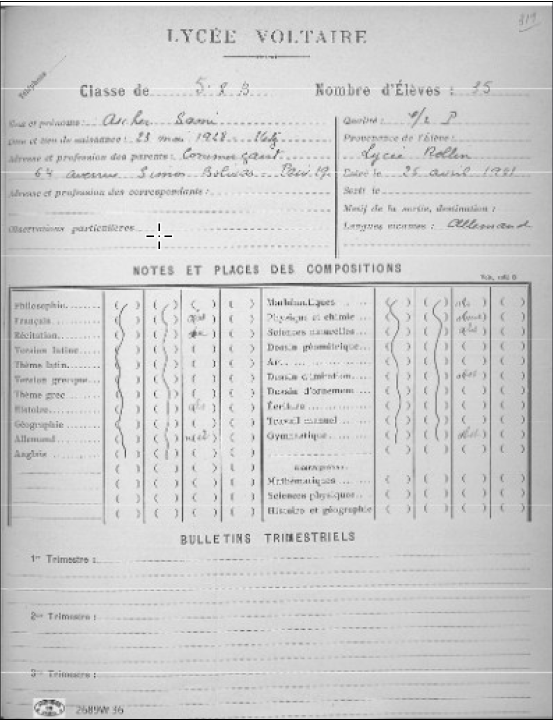 319
LYCÉE VOLTAIRE
Téléphone
Classe de 5e B Nombre d'Élèves : 35
Nom et prénoms : Ascher Sami
Date et lieu de naissance : 23 mai 1928 - Metz
Adresse et profession des parents : Commerçant
64 avenue Simon Bolivar - Paris 19e
Adresse et profession des correspondants :
Observations particulières
Qualité : 1/2 P
Provenance de l'élève :
Lycée Rollin
Entré le 26 avril 1941
Sorti le
Motif de la sortie, destination :
Langues vivantes : Allemand
NOTES ET PLACES DES COMPOSITIONS
Philosophie
Français abs
Récitation
Version latine
Thème latin
Version grecque
Thème grec
Histoire abs
Géographie
Allemand
Anglais
Mathématiques abs
Physique et chimie
Sciences naturelles abs
Dessin géométrique
Dessin d'imitation abst
Dessin d'ornement
Écriture
Travail manuel
Gymnastique abst
Mathématiques
Sciences physiques
Histoire et géographie
BULLETINS TRIMESTRIELS
1er Trimestre :
2me Trimestre :
3me Trimestre :
2689W 36